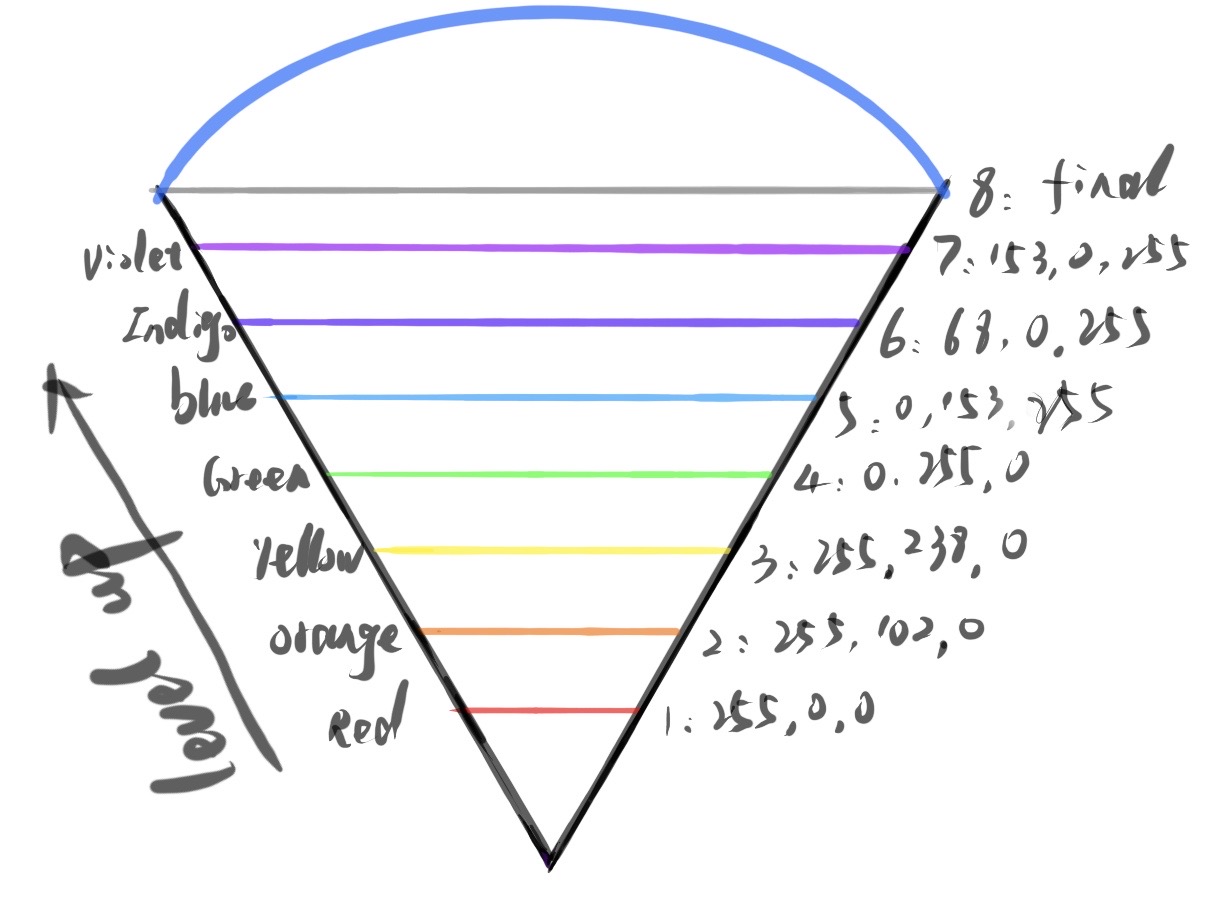 8: final
violet 7: 153, 0, 255
Indigo 6: 68, 0, 255
blue 5: 0, 153, 255
Green 4: 0. 255, 0
Yellow 3: 255, 238, 0
orange 2: 255, 102, 0
Red 1: 255, 0, 0
level up